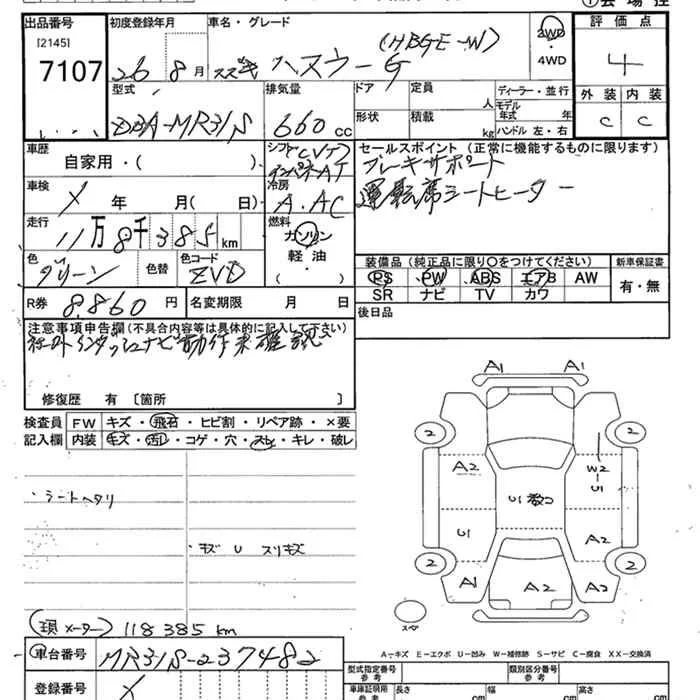 ①会 場 控
出品番号 初度登録年月 車名・グレード 評価点
[2145] (HBGE-W) 2WD
7107 26 8月 スズキ ハスラー G ・4WD 4
型式 排気量 ドア 定員 ディーラー・並行 外装 内装
DBA-MR31S 660cc 人 モデル年式 年
形状 積載 kg ハンドル 左・右 C C
車歴 シフト CVT セールスポイント (正常に機能するものに限ります)
自家用・( ). インパネAT ブレーキサポート
車検 冷房 運転席シートヒーター
X 年 月( 日) A.AC
走行 燃料
11万8千385km ガソリン
色 色替 色コード 軽油・ 装備品 (純正品に限り○をつけてください) 新車保証書
グリーン ZVD ( ) PS PW ABS エアB AW 有・無
R券 8.860円 名変期限 月 日 SR ナビ TV カワ
後日品
注意事項申告欄(不具合内容等は具体的に記入して下さい)
社外インダッシュナビ動作未確認
修復歴 有 〔箇所 〕
検査員 FW キズ・飛石・ヒビ割・リペア跡・×要
記入欄 内装 キズ・汚レ・コゲ・穴・スレ・キレ・破レ
A1 A1
2 2
A2 W2
U1
・シートヘタリ U1
U1 A2
・キズ U スリキズ
2 2
A1 A2 A2
スペ
(現メーター) 118385km
A-キズ E-エクボ U-凹み W-補修跡 S-サビ C-腐食 XX-交換済
車台番号 MR31S-237482 型式指定番号 参考 類別区分番号 参考
登録番号 X 車庫証明用 参考 長さ cm 幅 cm 高さ cm